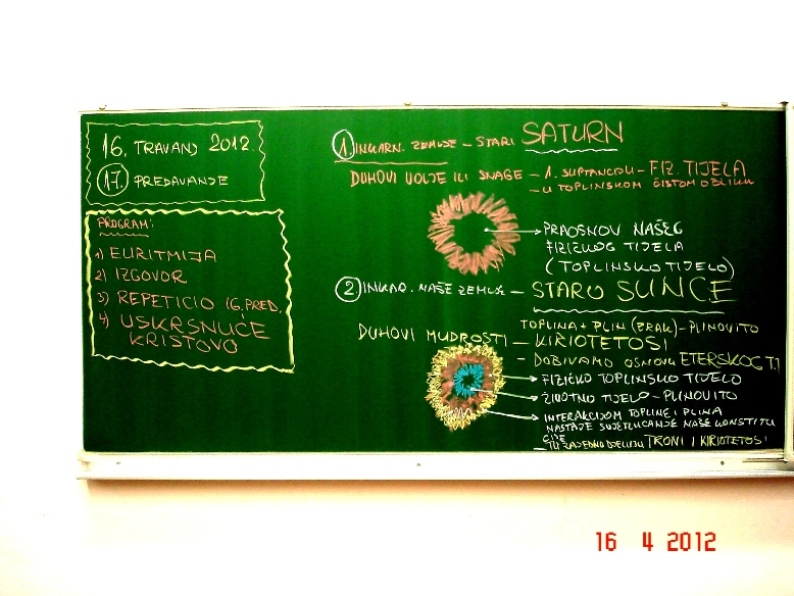 16. TRAVANJ 2012.
17. PREDAVANJE
PROGRAM:
1) EURITMIJA
2) IZGOVOR
3) REPETICIO 16. PRED.
4) USKRSNUĆE
KRISTOVO
1 INKARN. ZEMLJE – STARI SATURN
DUHOVI VOLJE ILI SNAGE – 1. SUPTANCOM – FIZ. TIJELA
– U TOPLINSKOM ČISTOM OBLIKU
PRAOSNOV NAŠEG
FIZIČKOG TIJELA
(TOPLINSKO TIJELO)
2 INKAR. NAŠE ZEMLJE – STARO SUNCE
TOPLINA + PLIN (ZRAK) – PLINOVITO
DUHOVI MUDROSTI – KIRIOTETOSI
– DOBIVAMO OSNOVU ETERSKOG T.
FIZIČKO TOPLINSKO TIJELO
ŽIVOTNO TIJELO – PLINOVITO
INTERAKCIJOM TOPLINE I PLINA
NASTAJE SVJETLUCANJE NAŠE KONSTITU
CIJE
– TU ZAJEDNO DJELUJU TRONI I KIRIOTETOSI
16 4 2012